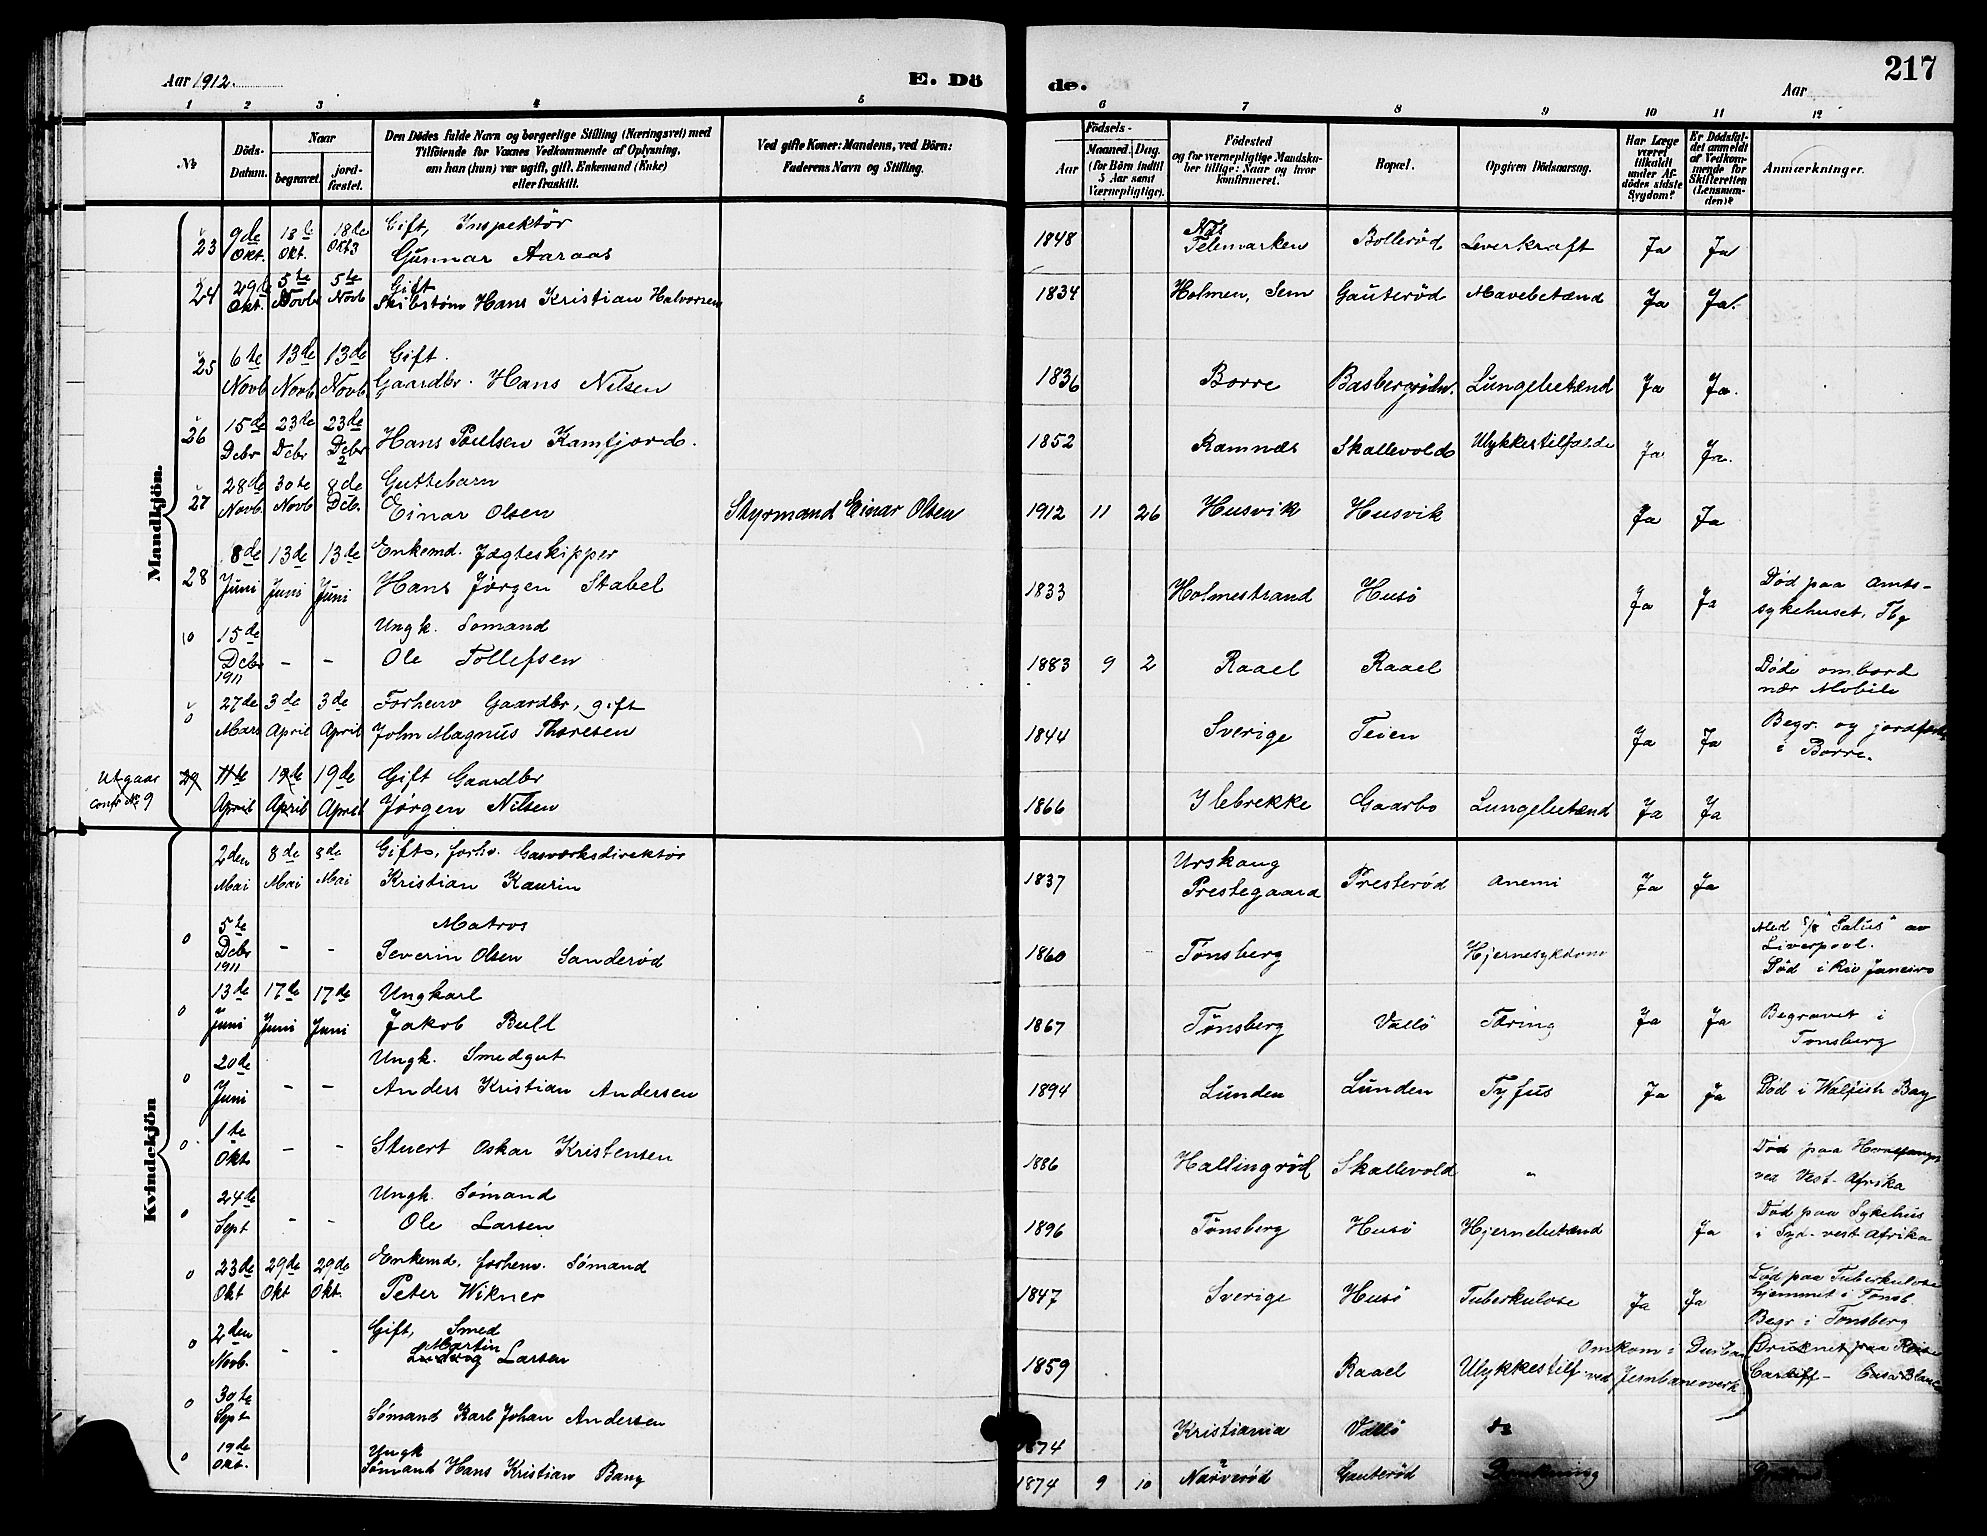 Aar 1912.
E. Döde.
Aar
217
1 2 3 4 5 6 7 8 9 10 11 12
No
Döds-Datum.
Naar
begravet.
jordfæstet.
Den Dödes fulde Navn og borgerlige Stilling (Næringsvei) med
Tilföiende for Voxnes Vedkommende af Oplysning,
om han (hun) var ugift, gift, Enkemand (Enke)
eller fraskilt.
Ved gifte Koner: Mandens, ved Börn:
Faderens Navn og Stilling.
Födsels-
Aar
Maaned. Dag.
(for Börn indtil
5 Aar samt
Værnepligtige).
Födested
og for værnepligtige Mandska-
ber tillige: Naar og hvor
konfirmeret.
Bopæl.
Opgiven Dödsaarsag.
Har Læge
været
tilkaldt
under Af-
dödes sidste
Sygdom?
Er Dödsfal-
det anmeldt
af Vedkom-
mende for
Skifteretten
(Lensman-
den)?
Anmærkninger.
Mandkjön.
23 9de Okt. 18de Okt. 18de Okt. Gift, Inspektör
Gunnar Aaraas 1848 Telemarken Bollerød Leverkraft Ja Ja
24 29de Okt. 5te Novb 5te Novb Gift
Skibstøm Hans Kristian Halvorsen 1834 Holmen, Sem Gauterød Mavebetænd Ja Ja.
25 6te Novb 13de Novb 13de Novb Gift.
Gaardbr. Hans Nilsen 1836 Borre Basbergrødn. Lungebetænd Ja Ja.
26 15de Debr 23de Debr 23de Debr
Hans Poulsen Kamfjord. 1852 Ramnæs Skallevold Ulykkestilfælde Ja Ja.
27 28de Novb. 30te Novb 8de Deb. Guttebarn
Einar Olsen Styrmand Einar Olsen 1912 11 26 Husvik Husvik Ja Ja
28 8de Juni 13de Juni 13de Juni Enkemd. Jægteskipper
Hans Jørgen Stabel 1833 Holmestrand Husö Ja Ja Død paa Amts-
sykehuset, Tbg
0 15de Debr 1911 - - Ungk. Sømand
Ole Tollefsen 1883 9 2 Raael Raael Døde ombord
nær Mobile
0 27de Mars 3de April 3de April Forhenv Gaardbr, gift
John Magnus Thoresen 1844 Sverige Teien Ja Ja Begr. og jordfæstet
i Borre.
Utgaar
confr No 9
29 11te April 19de April 19de April Gift Gaardbr
Jörgen Nilsen 1866 Ilebrekke Gaarbo Lungebetænd Ja Ja
Kvindekjön
2den Mai 8de Mai 8de Mai Gift, forhv. Gasværksdirektör
Kristian Kaurin 1837 Urskaug
Prestegaard Presterød Anemi Ja Ja
0 5te Debr 1911 - - Matros
Severin Olsen Sanderød 1860 Tønsberg Hjernesykdom Med S/S "Salus" av
Liverpool.
Død i Rio Janeiro
0 13de Juni 17de Juni 17de Juni Ungkarl
Jakob Bull 1867 Tønsberg Vallö Tæring Ja Ja Begravet i
Tønsberg
0 20de Juni - - Ungk. Smedgut
Anders Kristian Andersen 1894 Lunden Lunden Tyfus Ja Ja Død i Walfish Bay
0 1te Okt - - Stuert Oskar Kristensen 1886 Hallingrød Skallevold " Død paa Hvalfangst
ved Vest-Afrika
0 24de Sept - - Ungk. Sømand
Ole Larsen 1896 Tönsberg Husö Hjernebetænd Ja Død paa Sykehus
i Syd-vest Afrika
0 23de Okt 29de Okt 29de Okt. Enkemd. forhenv. Sømand
Peter Wikner 1847 Sverige Husö Tuberkulose Ja Ja Død paa Tuberkulose
hjemmet i Tønsb.
Begr i Tønsberg
0 2den Novb. - - Gift, Smed
Martin
Larsen 1859 Raael Ulykkestilf. Omkom i Durban
ved Jernbaneverk
0 30te Sept Sømand Karl Johan Andersen 1874 Kristiania Vallö Druknet paa Reise
Cardiff - Casa Blanca
0 19de Okt. Ungk
Sømand Hans Kristian Bang 1874 9 10 Narverød Gauterød Drukning